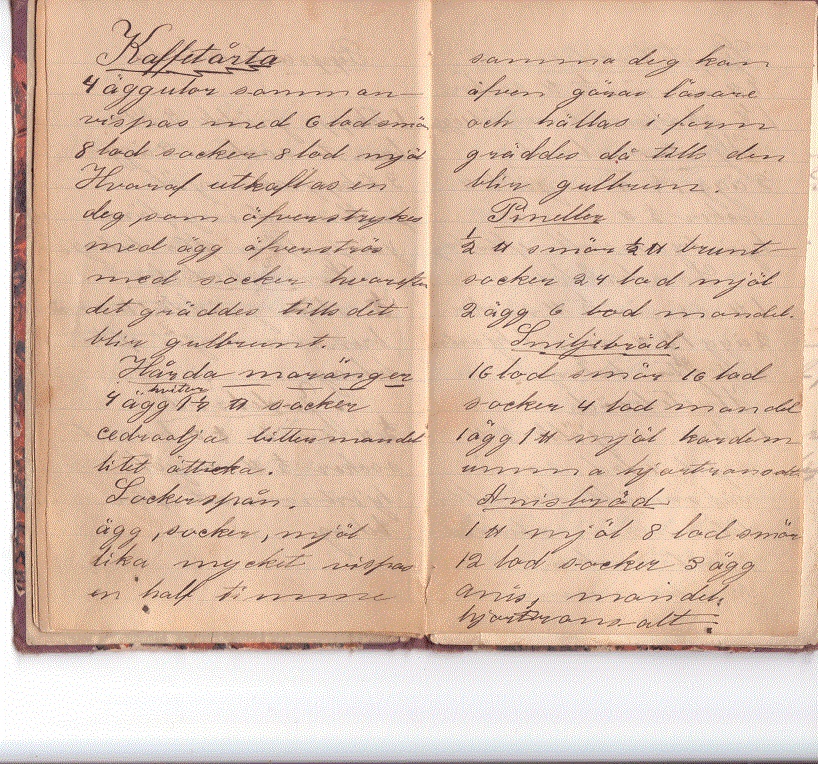 Kaffetårta
4 äggulor samman-
vispas med 6 lod smör
8 lod socker 8 lod mjöl
Hvaraf utkaflas en
deg, som äfverstrykes
med ägg äfverströs
med socker hvarefter
det gräddes tills det
blir gulbrunt.
Hårda maränger
hvitor
4 ägg 1 ℔ socker
cedroolja bittermandel
litet ätticka.
Sockerspån.
ägg, socker, mjöl
lika mycket vispas
en half timme
samma deg kan
äfven göras lösare
och hällas i form
gräddes då tills den
blir gulbrun.
Pineller
½ ℔ smör ½ ℔ brunt-
socker 24 lod mjöl
2 ägg 6 lod mandel.
Siviljebröd.
16 lod smör 16 lod
socker 4 lod mandel
1 ägg 1 ℔ mjöl kardem
umma hjortronsalt
Anisbröd
1 ℔ mjöl 8 lod smör
12 lod socker 3 ägg
anis, mandel,
hjortronsalt.